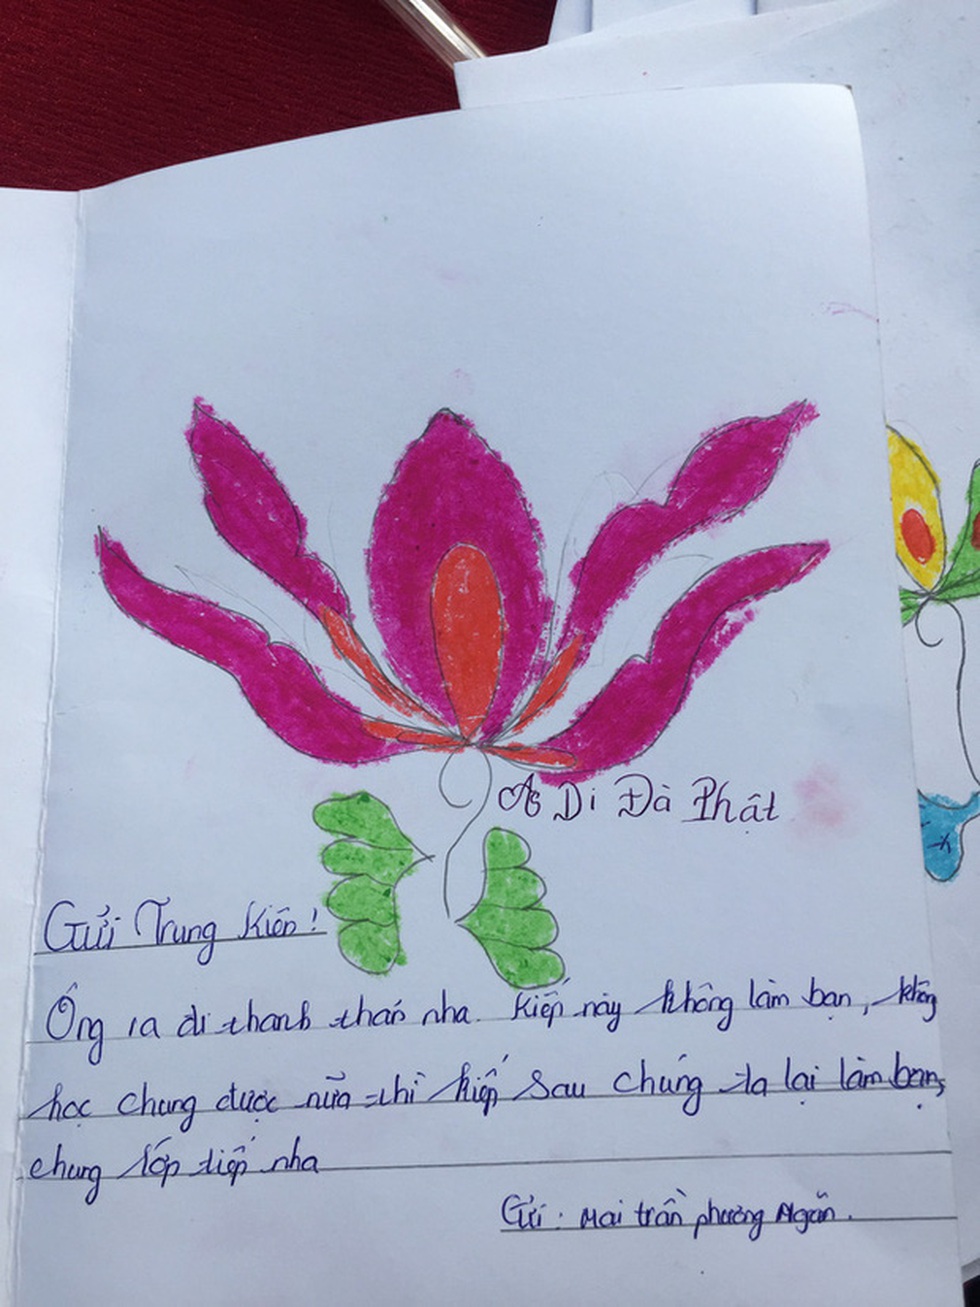 A Di Đà Phật
Gửi Trung Kiên!
Ông ra đi thanh thản nha. Kiếp này không làm bạn, không
học chung được nữa thì kiếp sau chúng ta lại làm bạn,
chung lớp tiếp nha
Gửi: Mai trần phương Ngân.